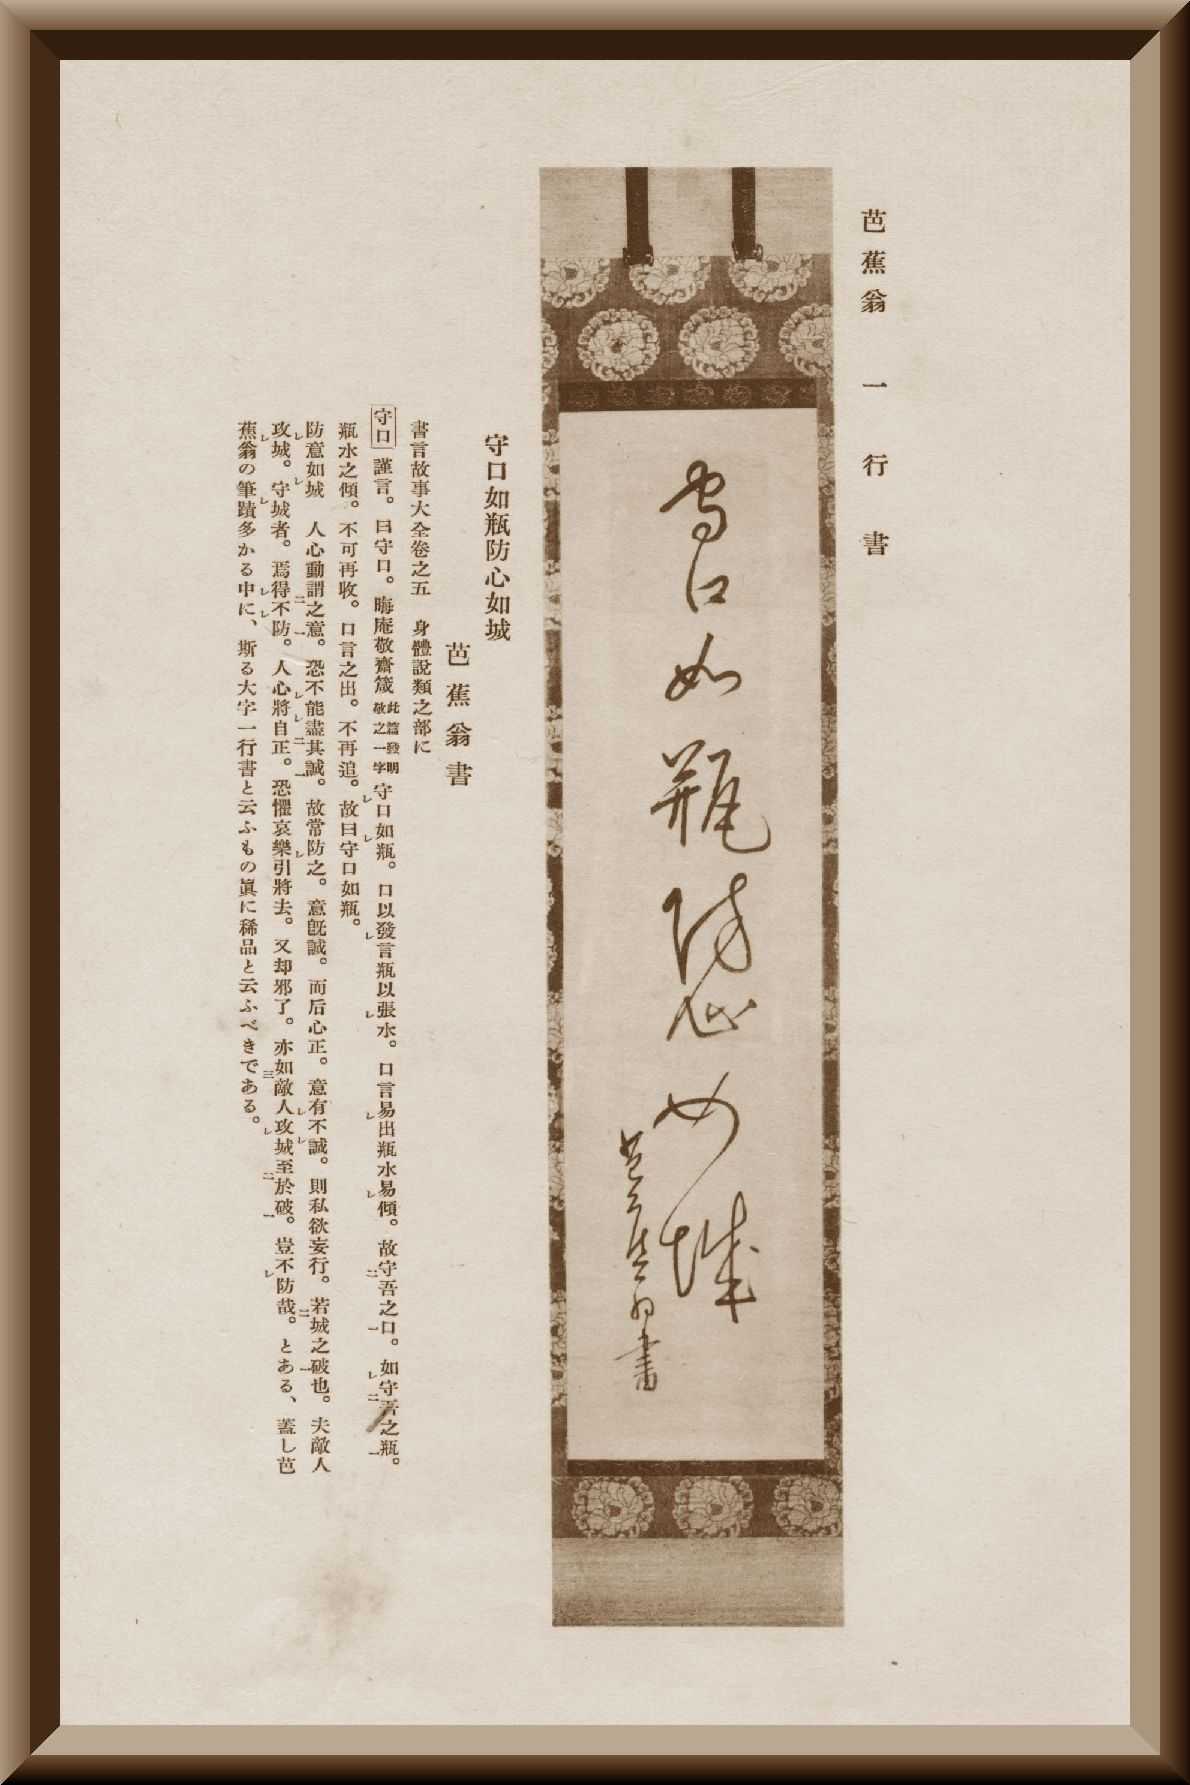 芭蕉翁一行書
守口如瓶防心如城
芭蕉翁書
守口如瓶防心如城
芭蕉翁書
書言故事大全卷之五　身體說類之部に
守口 謹言。曰守口。晦庵敬齋箴 此篇發明敬之一字 守口如瓶。口以發言瓶以張水。口言易出瓶水易傾。故守吾之口。如守吾之瓶。
瓶水之傾。不可再收。口言之出。不再追。故曰守口如瓶。
防意如城　人心動謂之意。恐不能盡其誠。故常防之。意既誠。而后心正。意有不誠。則私欲妄行。若城之破也。夫敵人
攻城。守城者。焉得不防。人心將自正。恐懼哀樂引將去。又却邪了。亦如敵人攻城至於破。豈不防哉。とある、蓋し芭
蕉翁の筆蹟多かる中に、斯る大字一行書と云ふもの眞に稀品と云ふべきである。